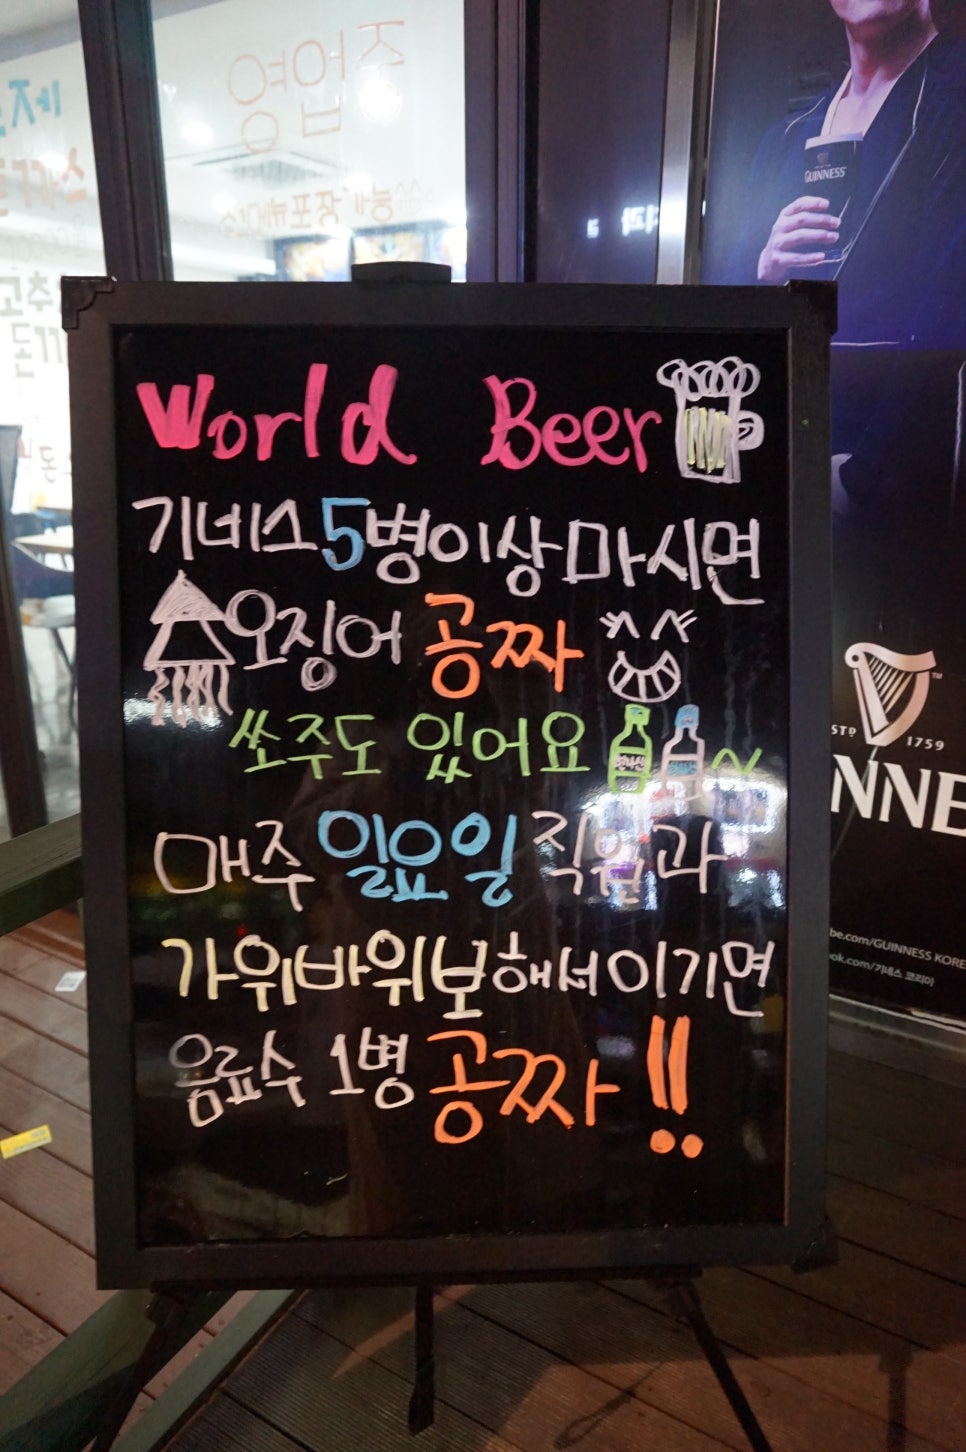 GUINNESS
World Beer
기네스 5병이상 마시면
오징어 공짜
쏘주도 있어요 ~
매주 일요일 직원과
가위바위보해서 이기면
음료수 1병 공짜!!
1759
GUINNESS KORE
기네스 코리아